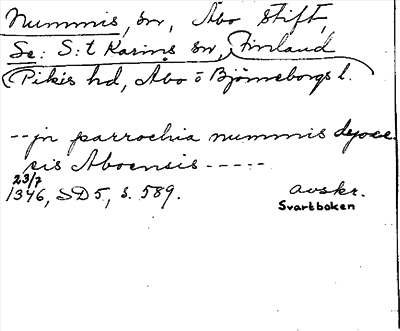 Nummis, sn, Åbo stift,
Se: S:t Karins sn, Finland
(Pikis hd, Åbo o Björneborgs l.
-- jn parrochia nummis dyoce-
sis Aboensis -----
23/7
1346, SD5, s. 589.
avskr.
Svartboken